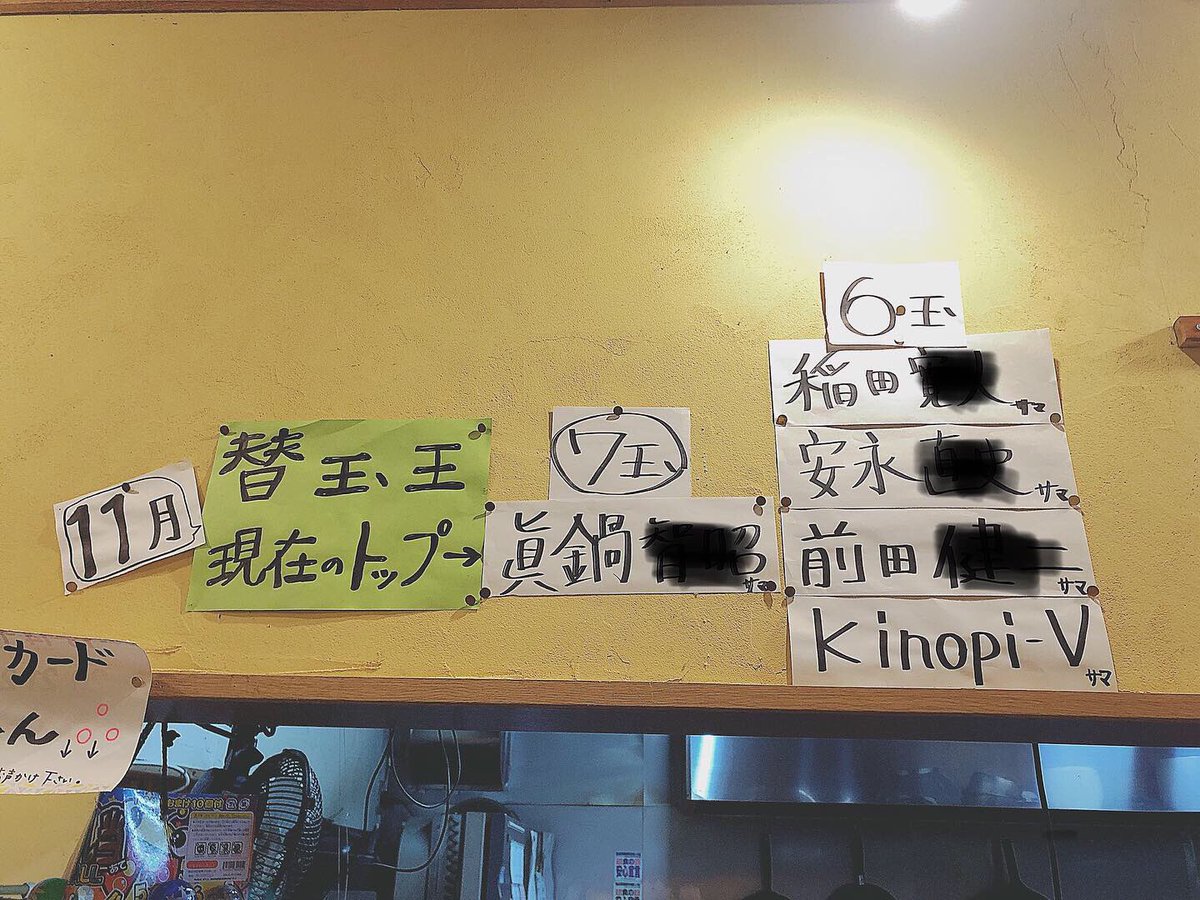 11月
替玉王
現在のトップ→
7玉
眞鍋
サマ
6玉
稲田
サマ
安永
サマ
前田
サマ
kinopi-V
サマ
カード
ん↓↓
声かけ下さい。
おまけ10個付